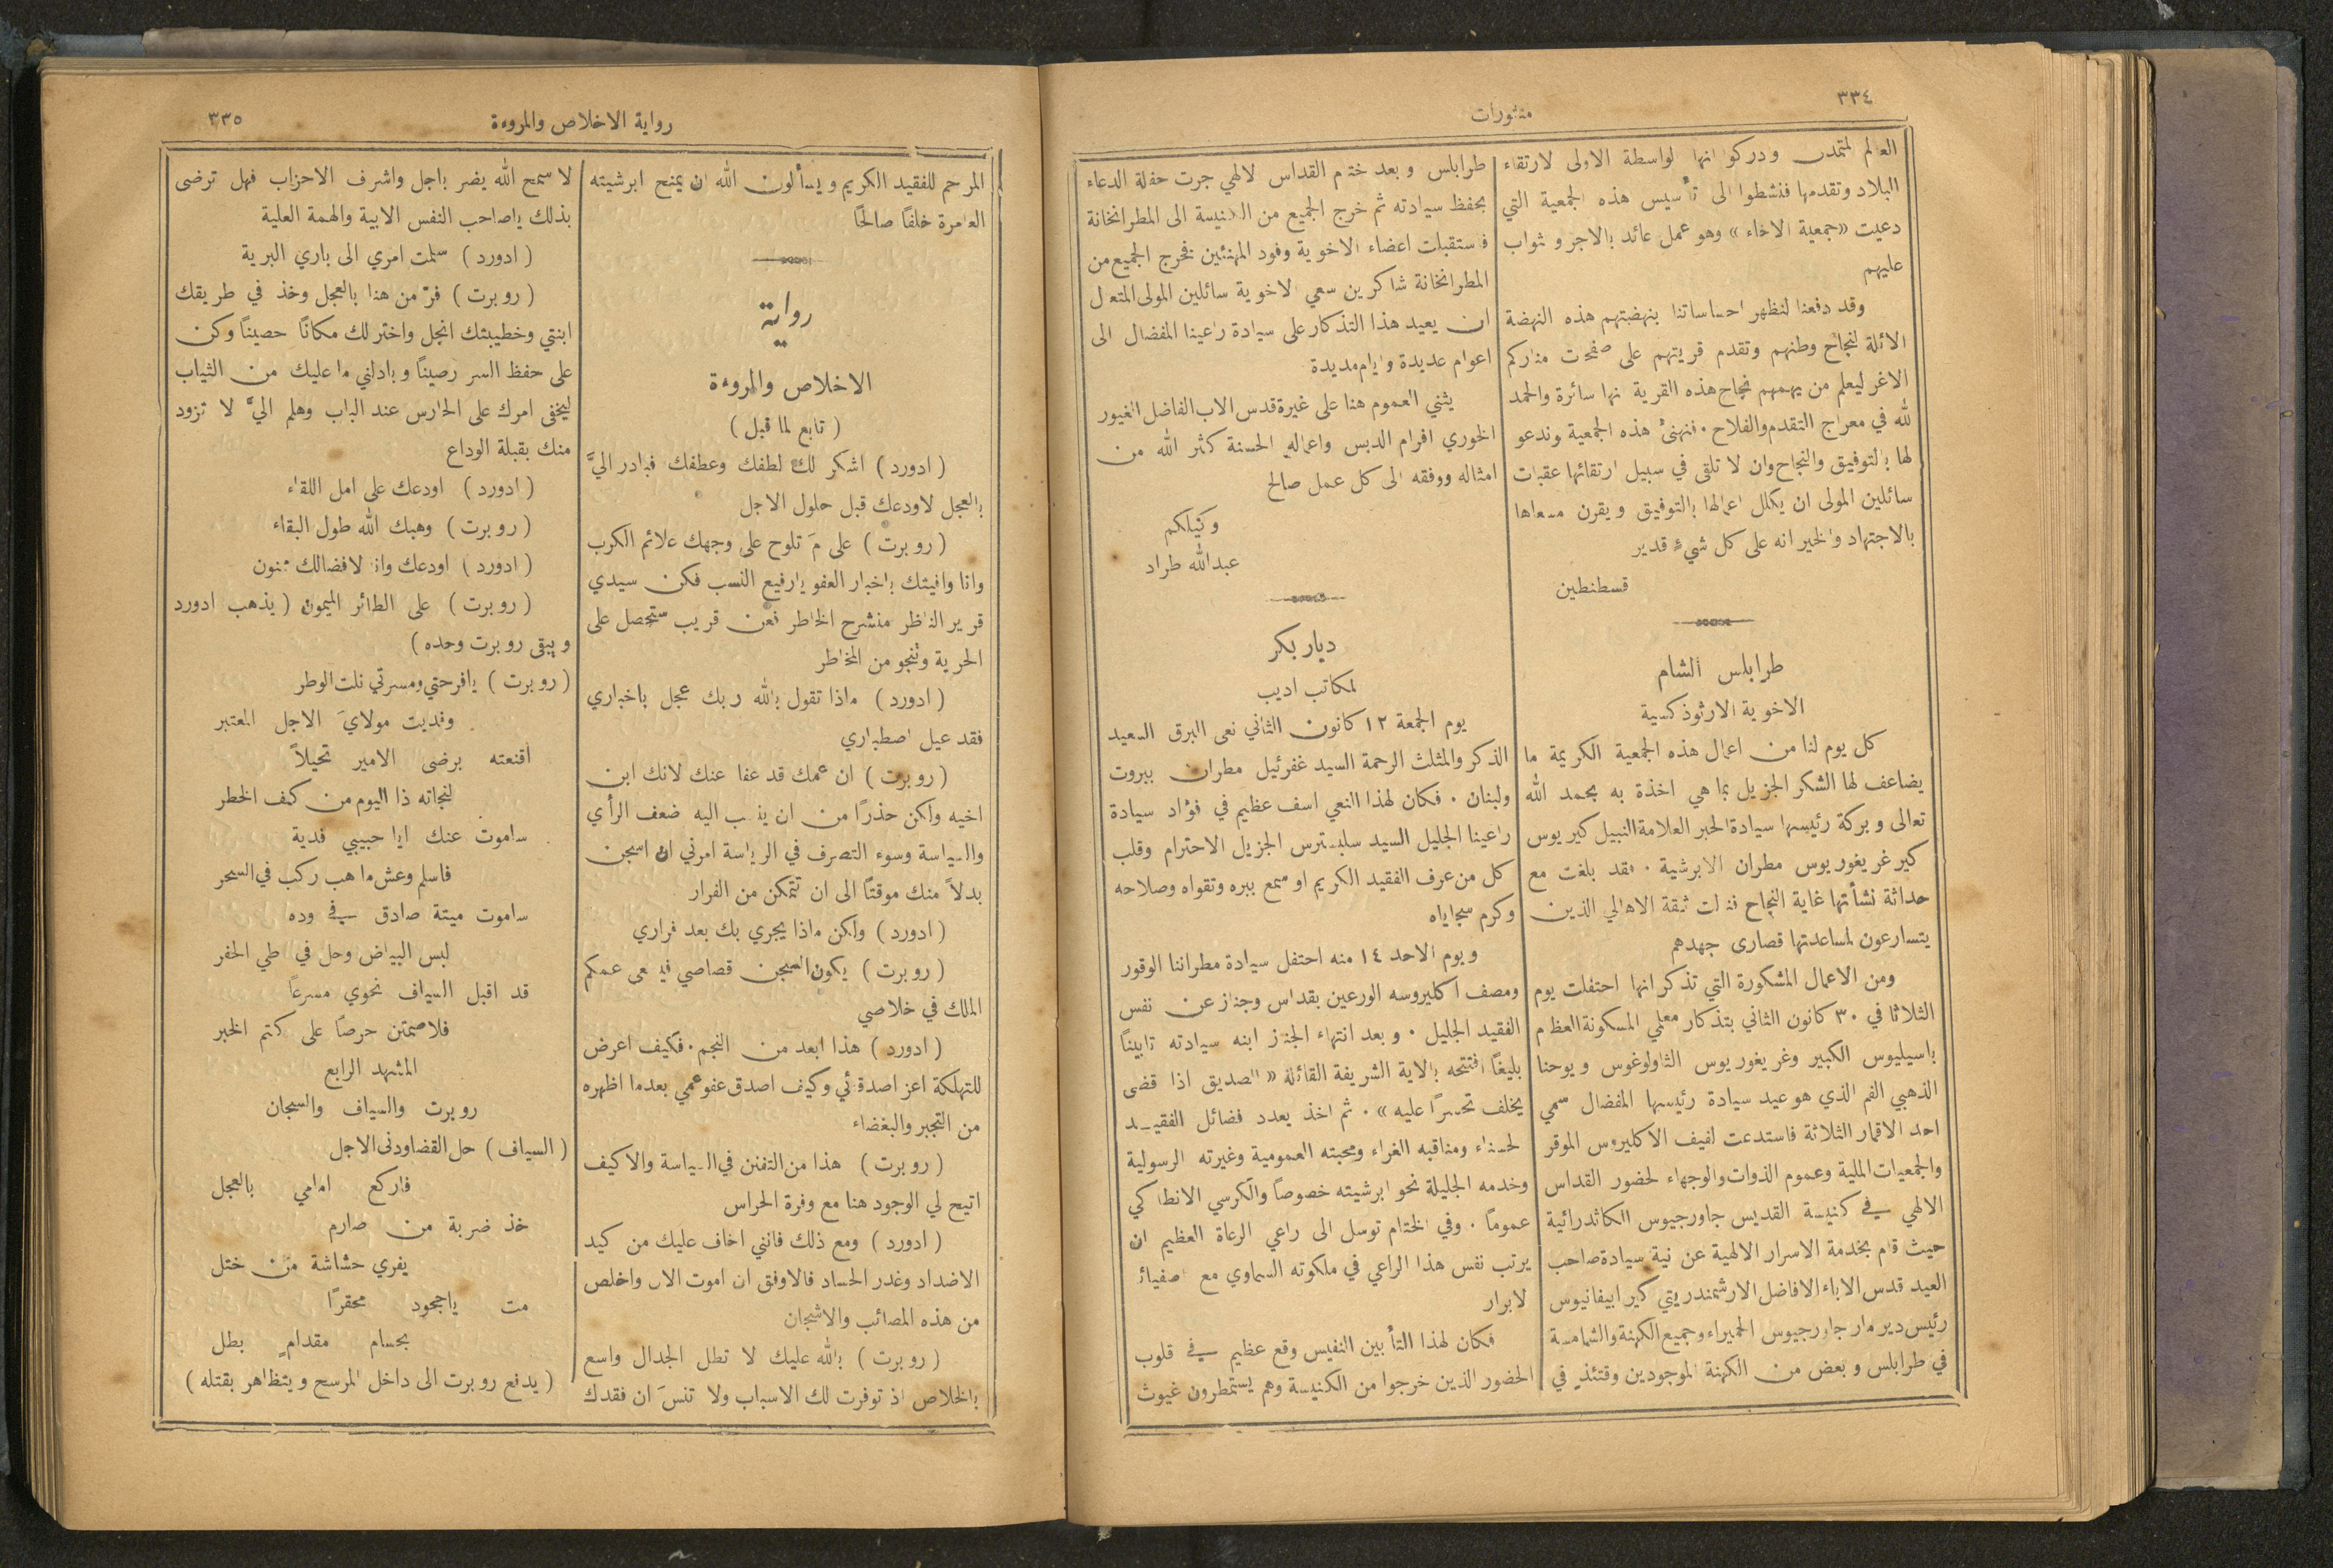 ٣٣٤
منثورات
العالم المتمدن ودركوا انها الواسطة الاولى لارتقاء
البلاد وتقدمها فنشطوا الى تأسيس هذه الجمعية التي
دعيت «جمعية الاخاء» وهو عمل عائد بالاجر وثواب
عليهم
وقد دفعنا لنظهر احساساتنا بنهضتهم هذه النهضة
الآئلة لنجاح وطنهم وتقدم قريتهم على صفحات مناركم
الاغر ليعلم من يهمهم نجاح هذه القرية انها سائرة والحمد
لله في معراج التقدم والفلاح. فنهنئ هذه الجمعية وندعو
لها بالتوفيق والنجاح وان لا تلقى في سبيل ارتقائها عقبات
سائلين المولى ان يكلل اعمالها بالتوفيق ويقرن مسعاها
بالاجتهاد والخير انه على كل شيءٍ قدير
قسطنطين
طرابلس الشام
الاخوية الارثوذكسية
كل يوم لنا من اعمال هذه الجمعية الكريمة ما
يضاعف لها الشكر الجزيل بما هي اخذة به بحمد الله
تعالى وبركة رئيسها سيادة الحبر العلامة النبيل كيريوس
كير غريغوريوس مطران الابرشية. فقد بلغت مع
حداثة نشأتها غاية النجاح فنالت ثقة الاهالي الذين
يتسارعون لمساعدتها قصارى جهدهم
ومن الاعمال المشكورة التي تذكر انها احتفلت يوم
الثلاثا في ٣٠ كانون الثاني بتذكار معلمي المسكونة العظام
باسيليوس الكبير وغريغوريوس الثاولوغوس ويوحنا
الذهبي الفم الذي هو عيد سيادة رئيسها المفضال سمي
احد الاقمار الثلاثة فاستدعت لفيف الاكليروس الموقر
والجمعيات الملية وعموم الذوات والوجهاء لحضور القداس
الالهي في كنيسة القديس جاورجيوس الكاثدرائية
حيث قام بخدمة الاسرار الالهية عن نية سيادة صاحب
العيد قدس الاباء الافاضل الارشمندريتي كير ابيفانيوس
رئيس دير مار جاورجيوس الحميراء وجميع الكهنة والشمامسة
في طرابلس وبعض من الكهنة الموجودين وقتئذٍ في
طرابلس وبعد ختام القداس الالهي جرت حفلة الدعاء
بحفظ سيادته ثم خرج الجميع من الكنيسة الى المطرانخانة
فاستقبلت اعضاء الاخوية وفود المهنئين فخرج الجميع من
المطرانخانة شاكرين سعي الاخوية سائلين المولى المتعال
ان يعيد هذا التذكار على سيادة راعينا المفضال الى
اعوام عديدة وايام مديدة
يثني العموم هنا على غيرة قدس الاب الفاضل الغيور
الخوري افرام الدبس واعماله الحسنة كثر الله من
امثاله ووفقه الى كل عمل صالح
وكيلكم
عبدالله طراد
ديار بكر
لمكاتب اديب
يوم الجمعة ١٢ كانون الثاني نعى البرق السعيد
الذكر والمثلث الرحمة السيد غفرئيل مطران بيروت
ولبنان. فكان لهذا النعي اسف عظيم في فؤاد سيادة
راعينا الجليل السيد سلبسترس الجزيل الاحترام وقلب
كل من عرف الفقيد الكريم او سمع ببره وتقواه وصلاحه
وكرم سجاياه
ويوم الاحد ١٤ منه احتفل سيادة مطراننا الوقور
ومصف اكليروسه الورعين بقداس وجناز عن نفس
الفقيد الجليل. وبعد انتهاء الجناز ابنه سيادته تابينًا
بليغًا افتتحه بالاية الشريفة القائلة «الصديق اذا قضى
يخلف تحسرًا عليه». ثم اخذ يعدد فضائل الفقيد
الحسناء ومناقبه الغراء ومحبته العمومية وغيرته الرسولية
وخدمه الجليلة نحو ابرشيته خصوصاً والكرسي الانطاكي
عموماً. وفي الختام توسل الى راعي الرعاة العظيم ان
يرتب نفس هذا الراعي في ملكوته السماوي مع اصفيائه
الابرار
فكان لهذا التأبين النفيس وقع عظيم في قلوب
الحضور الذين خرجوا من الكنيسة وهم يستمطرون غيوث
رواية الاخلاص والمروءة
٣٣٥
المراحم للفقيد الكريم ويسألون الله ان يمنح ابرشيته
العامرة خلفًا صالحًا
رواية
الاخلاص والمروءة
(تابع لما قبل)
(ادورد) اشكر لك لطفك وعطفك فبادر اليَّ
بالعجل لاودعك قبل حلول الاجل
(روبرت) على مَ تلوح على وجهك علائم الكرب
وانا وافيتك باخبار العفو يا رفيع النسب فكن سيدي
قرير الناظر منشرح الخاطر فعن قريب ستحصل على
الحرية وتنجو من المخاطر
(ادورد) ماذا تقول بالله ربك عجل باخباري
فقد عيل اصطباري
(روبرت) ان عمك قد عفا عنك لانك ابن
اخيه ولكن حذرًا من ان ينسب اليه ضعف الرأي
والسياسة وسوء التصرف في الرياسة امرني ان اسجن
بدلاً منك موقتًا الى ان تتمكن من الفرار
(ادورد) ولكن ماذا يجري بك بعد فراري
(روبرت) يكون السجن قصاصي فيسعى عمكم
الملك في خلاصي
(ادورد) هذا ابعد من النجم. فكيف اعرض
للتهلكة اعز اصدقائي وكيف اصدق عفو عمي بعدما اظهره
من التجبر والبغضاء
(روبرت) هذا من التفنن في السياسة والا كيف
اتيح لي الوجود هنا مع وفرة الحراس
(ادورد) ومع ذلك فانني اخاف عليك من كيد
الاضداد وغدر الحساد فالاوفق ان اموت الان واخلص
من هذه المصائب والاشجان
(روبرت) بالله عليك لا تطل الجدال واسع
بالخلاص اذ توفرت لك الاسباب ولا تنسَ ان فقدك
لا سمح الله يضر باجل واشرف الاحزاب فهل ترضى
بذلك ياصاحب النفس الابية والهمة العلية
(ادورد) سلمت امري الى باري البرية
(روبرت) فرّ من هنا بالعجل وخذ في طريقك
ابنتي وخطيبتك انجل واختر لك مكانًا حصينًا وكن
على حفظ السر رصينًا وبادلني ما عليك من الثياب
ليخفى امرك على الحارس عند الباب وهلم اليَّ لا تزود
منك بقبلة الوداع
(ادورد) اودعك على امل اللقاء
(روبرت) وهبك الله طول البقاء
(ادورد) اودعك وانا لافضالك ممنون
(روبرت) على الطائر الميمون (يذهب ادورد
ويبقى روبرت وحده)
(روبرت) يافرحتي ومسرتي نلت الوطر
وفديت مولايَ الاجل المعتبر
اقنعته برضى الامير تحيلاً
لنجاته ذا اليوم من كنف الخطر
ساموت عنك ايا حبيبي فدية
فاسلم وعش ما هب ركب في السحر
ساموت ميتة صادق في وده
لبس البياض وحل في طي الحفر
قد اقبل السياف نحوي مسرعاً
فلاصمتن حرصاً على كتم الخبر
المشهد الرابع
روبرت والسياف والسجان
(السياف) حل القضا ودنى الاجل
فاركع امامي بالعجل
خذ ضربة من صارم
يفري حشاشة من ختل
مت ياجحود محقرًا
بحسام مقدامٍ بطل
(يدفع روبرت الى داخل المرسح ويتظاهر بقتله)